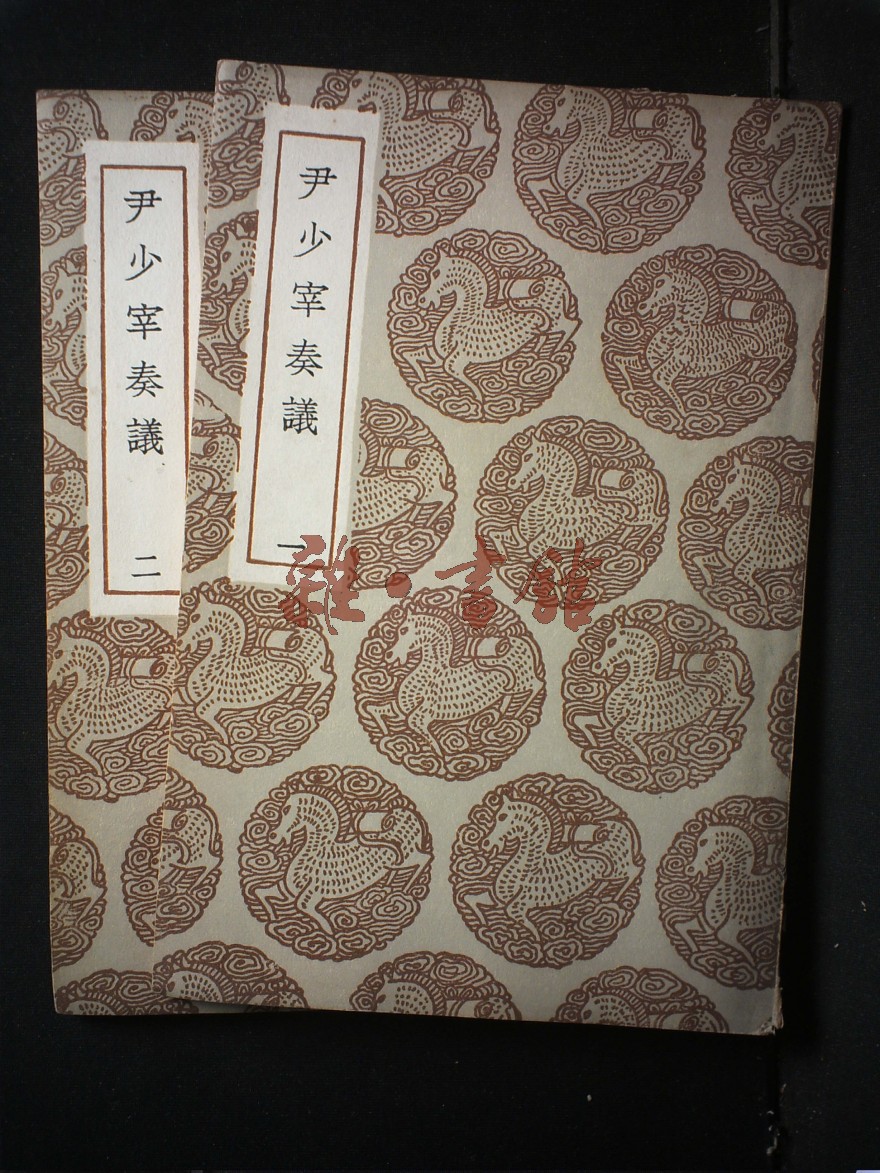 尹少宰奏議
一
尹少宰奏議
二
雜·書館